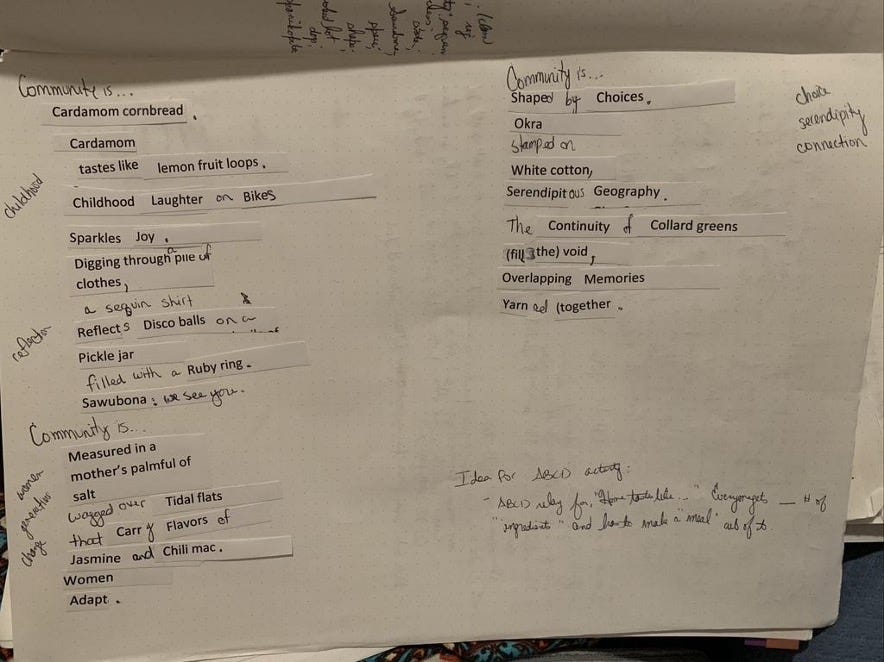 Community is...
Cardamom cornbread.
Cardamom
tastes like lemon fruit loops.
childhood
Childhood Laughter on Bikes
Sparkles Joy.
Digging through a pile of
clothes,
a sequin shirt
Reflects Disco balls on a
reflection
Pickle jar
filled with a Ruby ring.
Sawubona: we see you.
Community is...
Measured in a
mother's palmful of
salt
women
generation
change
wagged over Tidal flats
that Carry Flavors of
Jasmine and Chili mac.
Women
Adapt.
Community is...
Shaped by Choices.
Okra
stamped on
White cotton,
Serendipitous Geography.
The Continuity of Collard greens
(fill the) void,
Overlapping Memories
Yarned (together.
choice
serendipity
connection
Idea for ABCD activity:
- ABCD relay for, "Home tastes like..." Everyone gets __ # of
"ingredients" and has to make a "meal" out of to